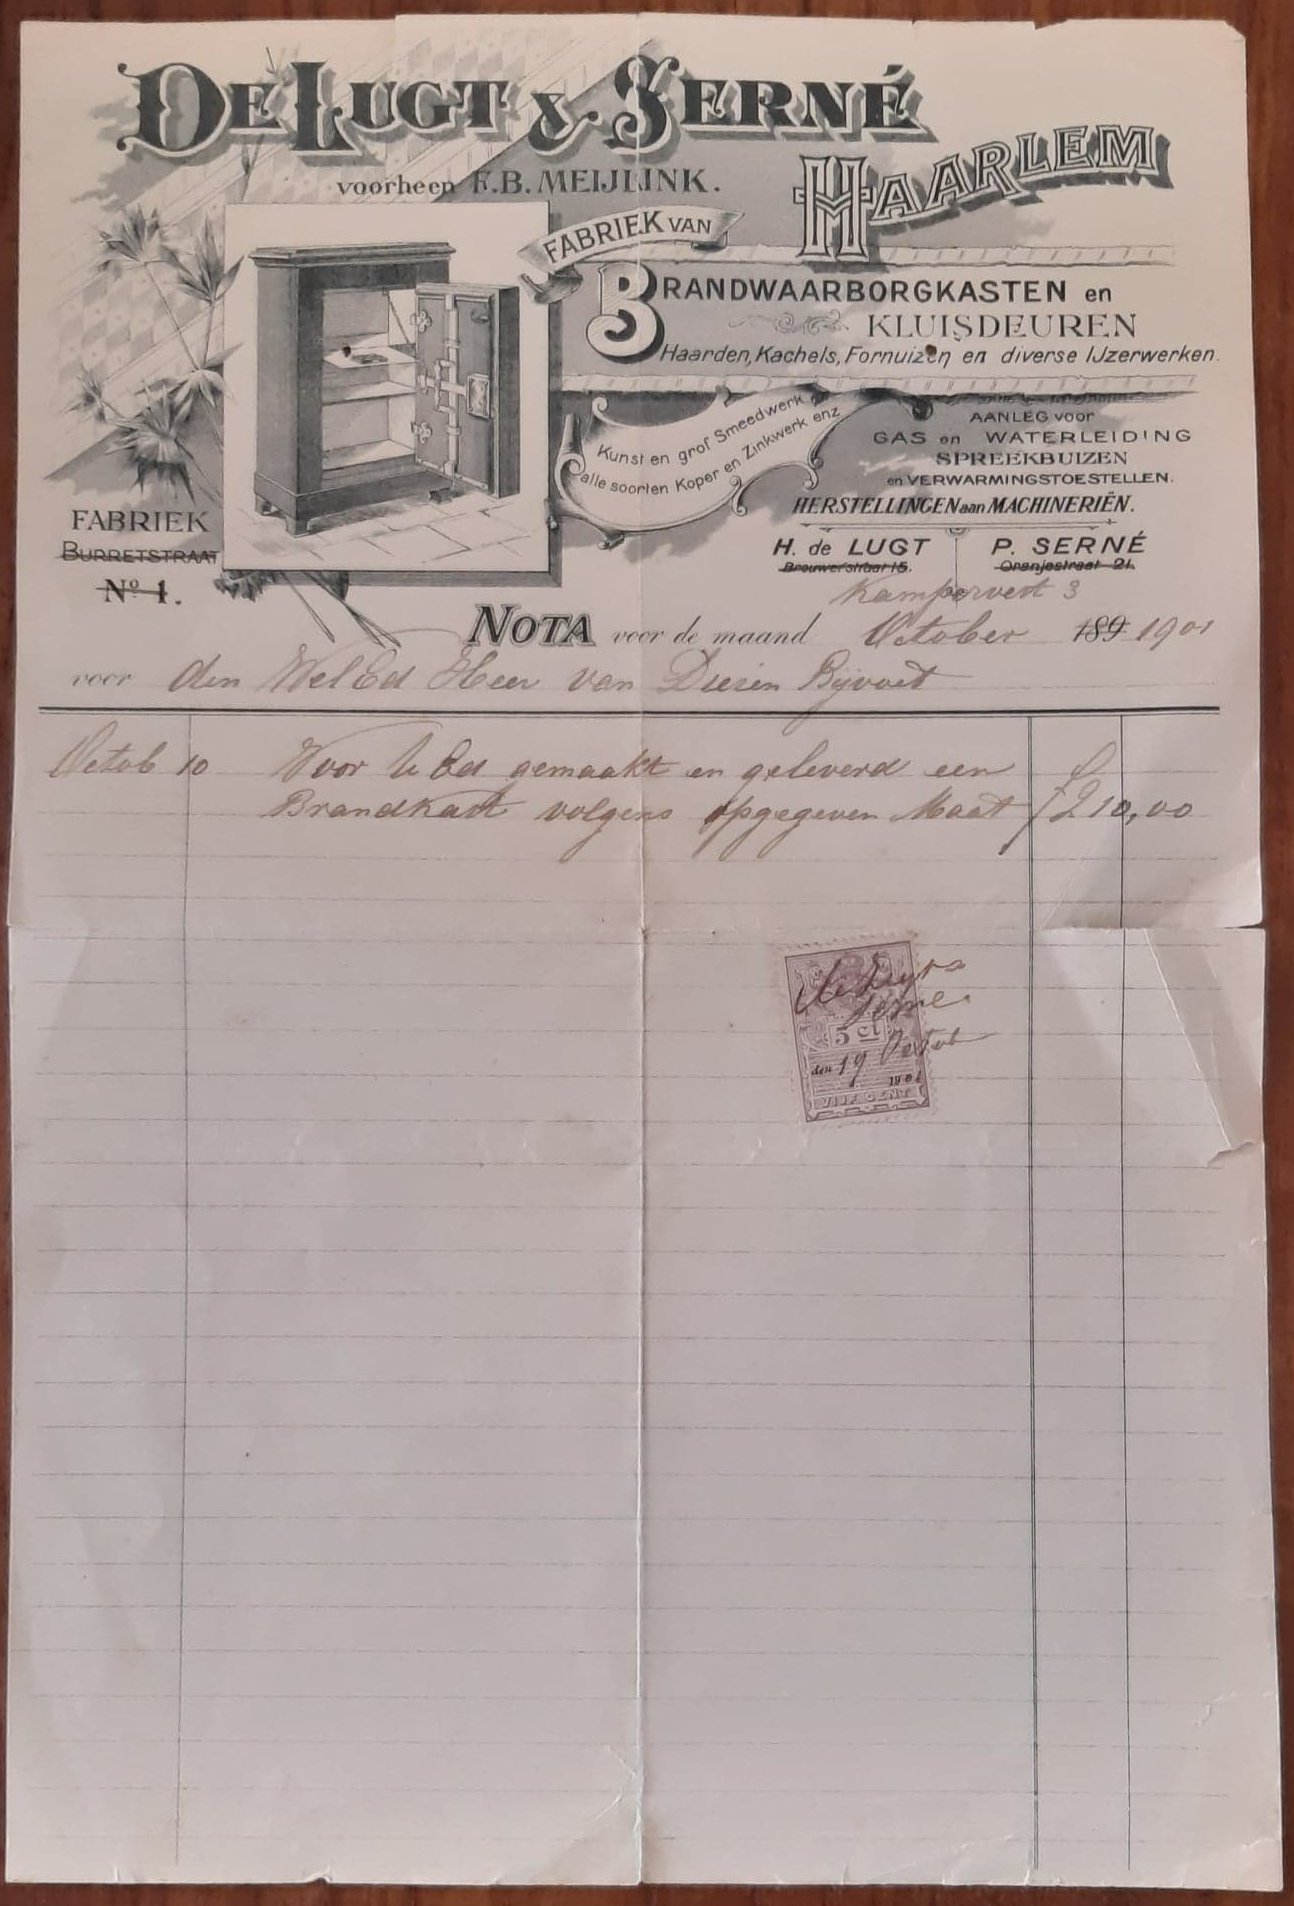 DE LUGT & SERNÉ
HAARLEM
voorheen F.B. MEIJLINK.
FABRIEK VAN
BRANDWAARBORGKASTEN en
KLUISDEUREN
Haarden, Kachels, Fornuizen en diverse IJzerwerken.
Kunst en grof Smeedwerk
alle soorten Koper en Zinkwerk enz
AANLEG voor
GAS en WATERLEIDING
SPREEKBUIZEN
en VERWARMINGSTOESTELLEN.
HERSTELLINGEN aan MACHINERIËN.
FABRIEK
BURRETSTRAAT
No 1.
H. de LUGT P. SERNÉ
Brouwerstraat 15. Oranjestraat 21.
Kampervest 3
NOTA voor de maand October 189 1901
voor den WelEd Heer van Diesen Bijvoet
Octob 10 Voor U Ed gemaakt en geleverd een
Brandkast volgens opgegeven Maat f 210,00
de Lugt &
Serné
5 ct
den 19 Octob
1901
VIJF CENT